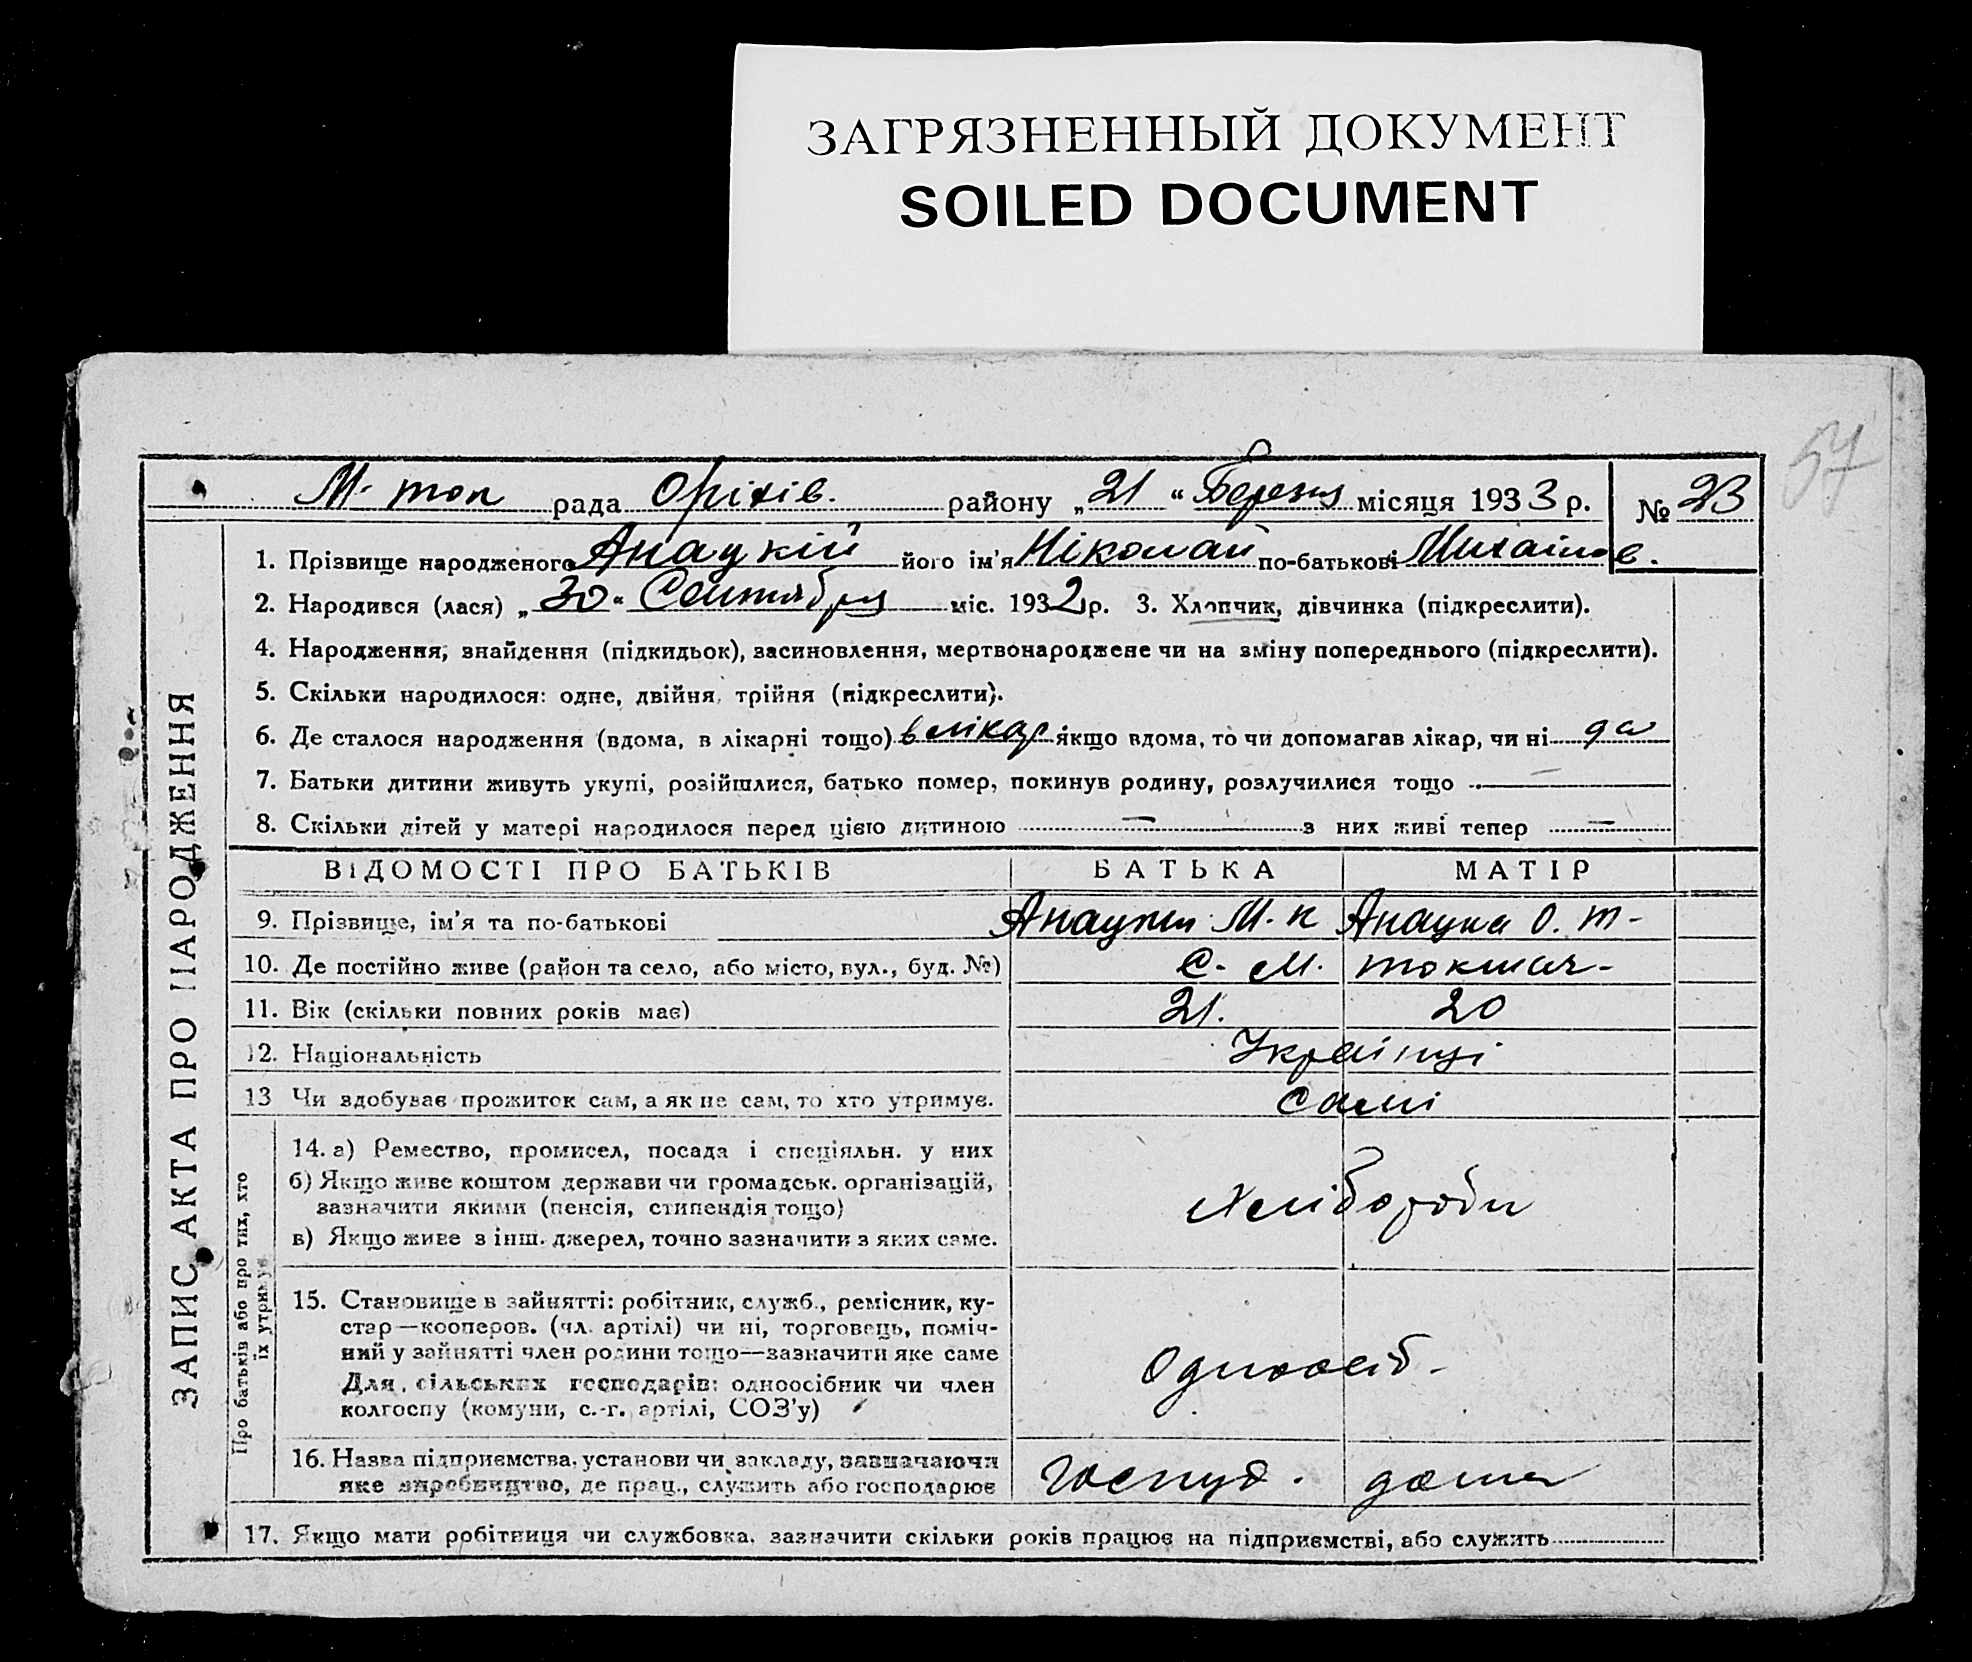 ЗАГРЯЗНЕННЫЙ ДОКУМЕНТ
SOILED DOCUMENT
57
М. Ток рада Оріхів. району „21“ Березня місяця 1933 р. № 23
ЗАПИС АКТА ПРО НАРОДЖЕННЯ
1. Прізвище народженого Анацкій його ім'я Ніколай по-батькові Михайлов.
2. Народився (лася) „30“ Сентября міс. 1932 р. 3. Хлопчик, дівчинка (підкреслити).
4. Народження, знайдення (підкидьок), засиновлення, мертвонароджене чи на зміну попереднього (підкреслити).
5. Скільки народилося: одне, двійня, трійня (підкреслити).
6. Де сталося народження (вдома, в лікарні тощо) в лікар якщо вдома, то чи допомагав лікар, чи ні да
7. Батьки дитини живуть укупі, розійшлися, батько помер, покинув родину, розлучилися тощо —
8. Скільки дітей у матері народилося перед цією дитиною — з них живі тепер —
ВІДОМОСТІ ПРО БАТЬКІВ БАТЬКА МАТІР
9. Прізвище, ім'я та по-батькові Анацкий М. К Анацка О. Т-
10. Де постійно живе (район та село, або місто, вул., буд. №) С. М. Токмач-
11. Вік (скільки повних років має) 21. 20
12. Національність Українці
13 Чи здобуває прожиток сам, а як не сам, то хто утримує. Самі
Про батьків або про тих, хто
їх утримує
14. а) Ремество, промисел, посада і спеціяльн. у них
б) Якщо живе коштом держави чи громадськ. організацій,
зазначити якими (пенсія, стипендія тощо)
Хлібороби
в) Якщо живе з інш. джерел, точно зазначити з яких саме.
15. Становище в зайнятті: робітник, служб., ремісник, ку-
стар—кооперов. (чл. артілі) чи ні, торговець, поміч-
ний у зайнятті член родини тощо—зазначити яке саме
Одноосіб-
Для сільських господарів: одноосібник чи член
колгоспу (комуни, с.-г. артілі, СОЗ'у)
16. Назва підприємства, установи чи закладу, зазначаючи
яке виробництво, де прац., служить або господарює дома
17. Якщо мати робітниця чи службовка, зазначити скільки років працює на підприємстві, або служить